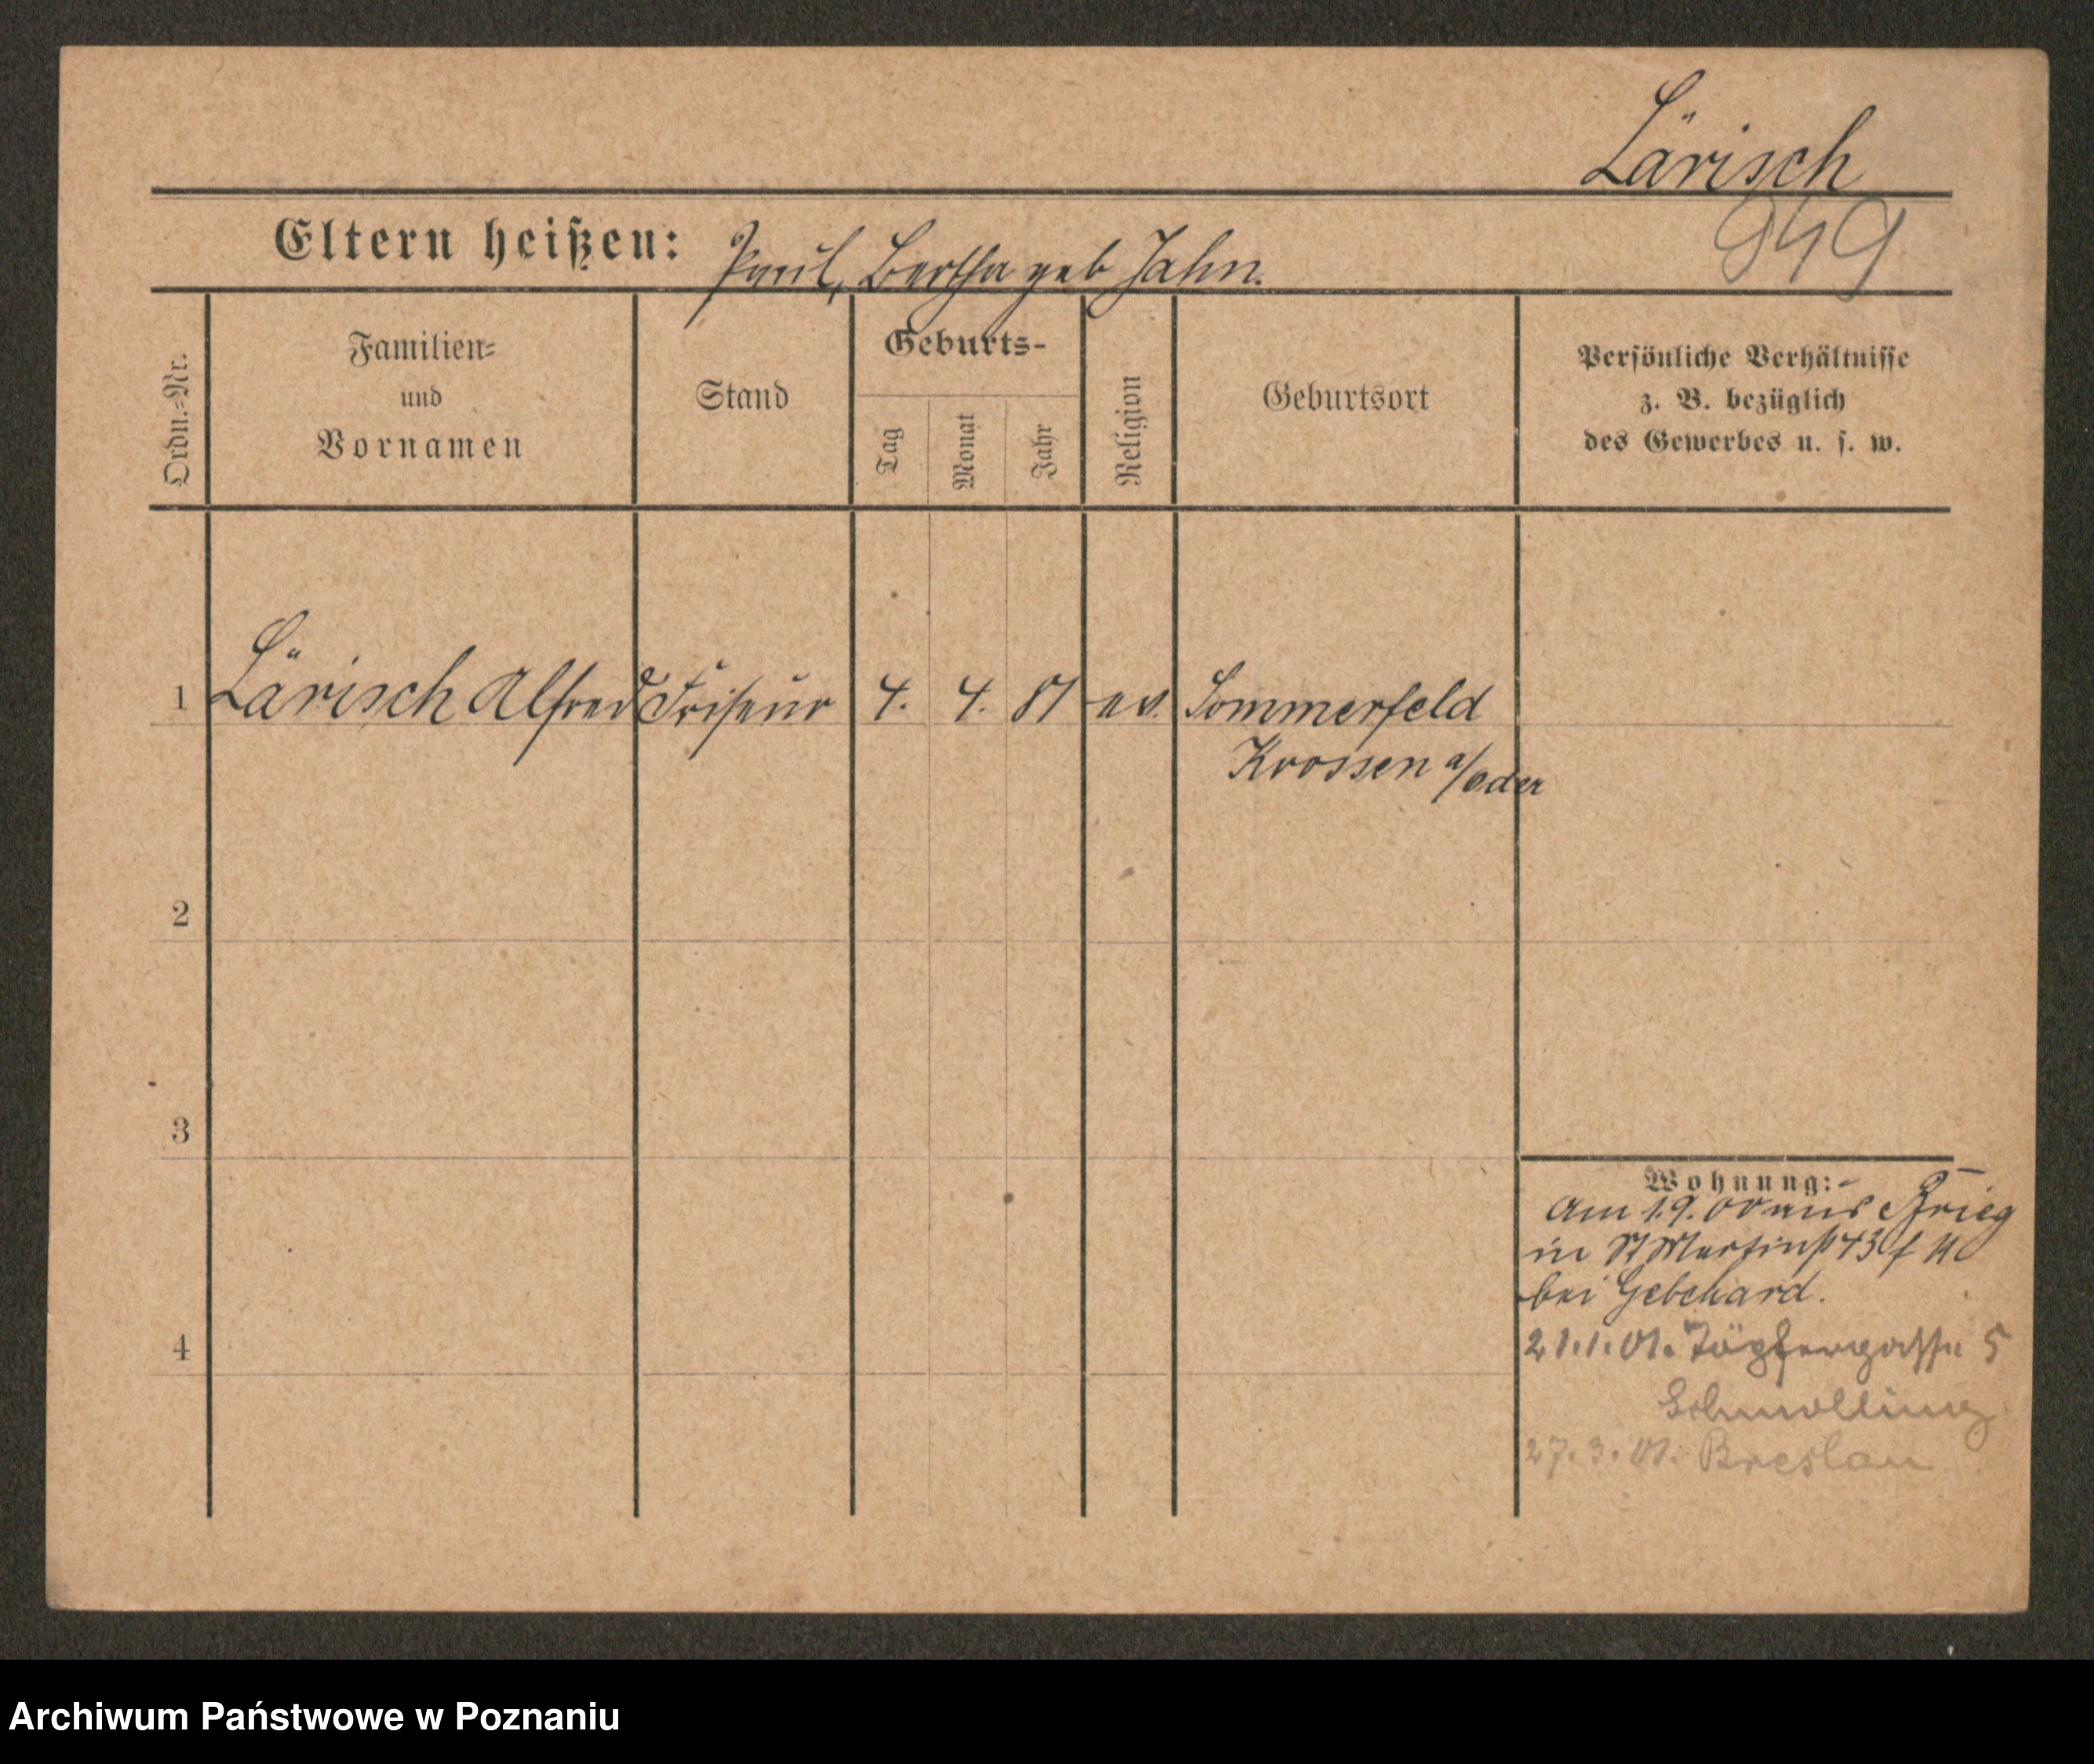 Lärisch
949
Eltern heißen: Paul, Bertha geb Jahn.
Ordn.=Nr.
Familien=
und
Vornamen
Stand
Geburts-
Tag
Monat
Jahr
Religion
Geburtsort
Persönliche Verhältnisse
z. B. bezüglich
des Gewerbes u. s. w.
1 Lärisch Alfred Friseur 4. 4. 81 ev. Sommerfeld
Krossen a/Oder
2
3
4
Wohnung:
am 1.9.00 aus Brieg
in St Martinstr 43
bei Gebehard.
21.1.01. Töpfergasse 5
Schmolling
27.3.01. Breslau
Archiwum Państwowe w Poznaniu